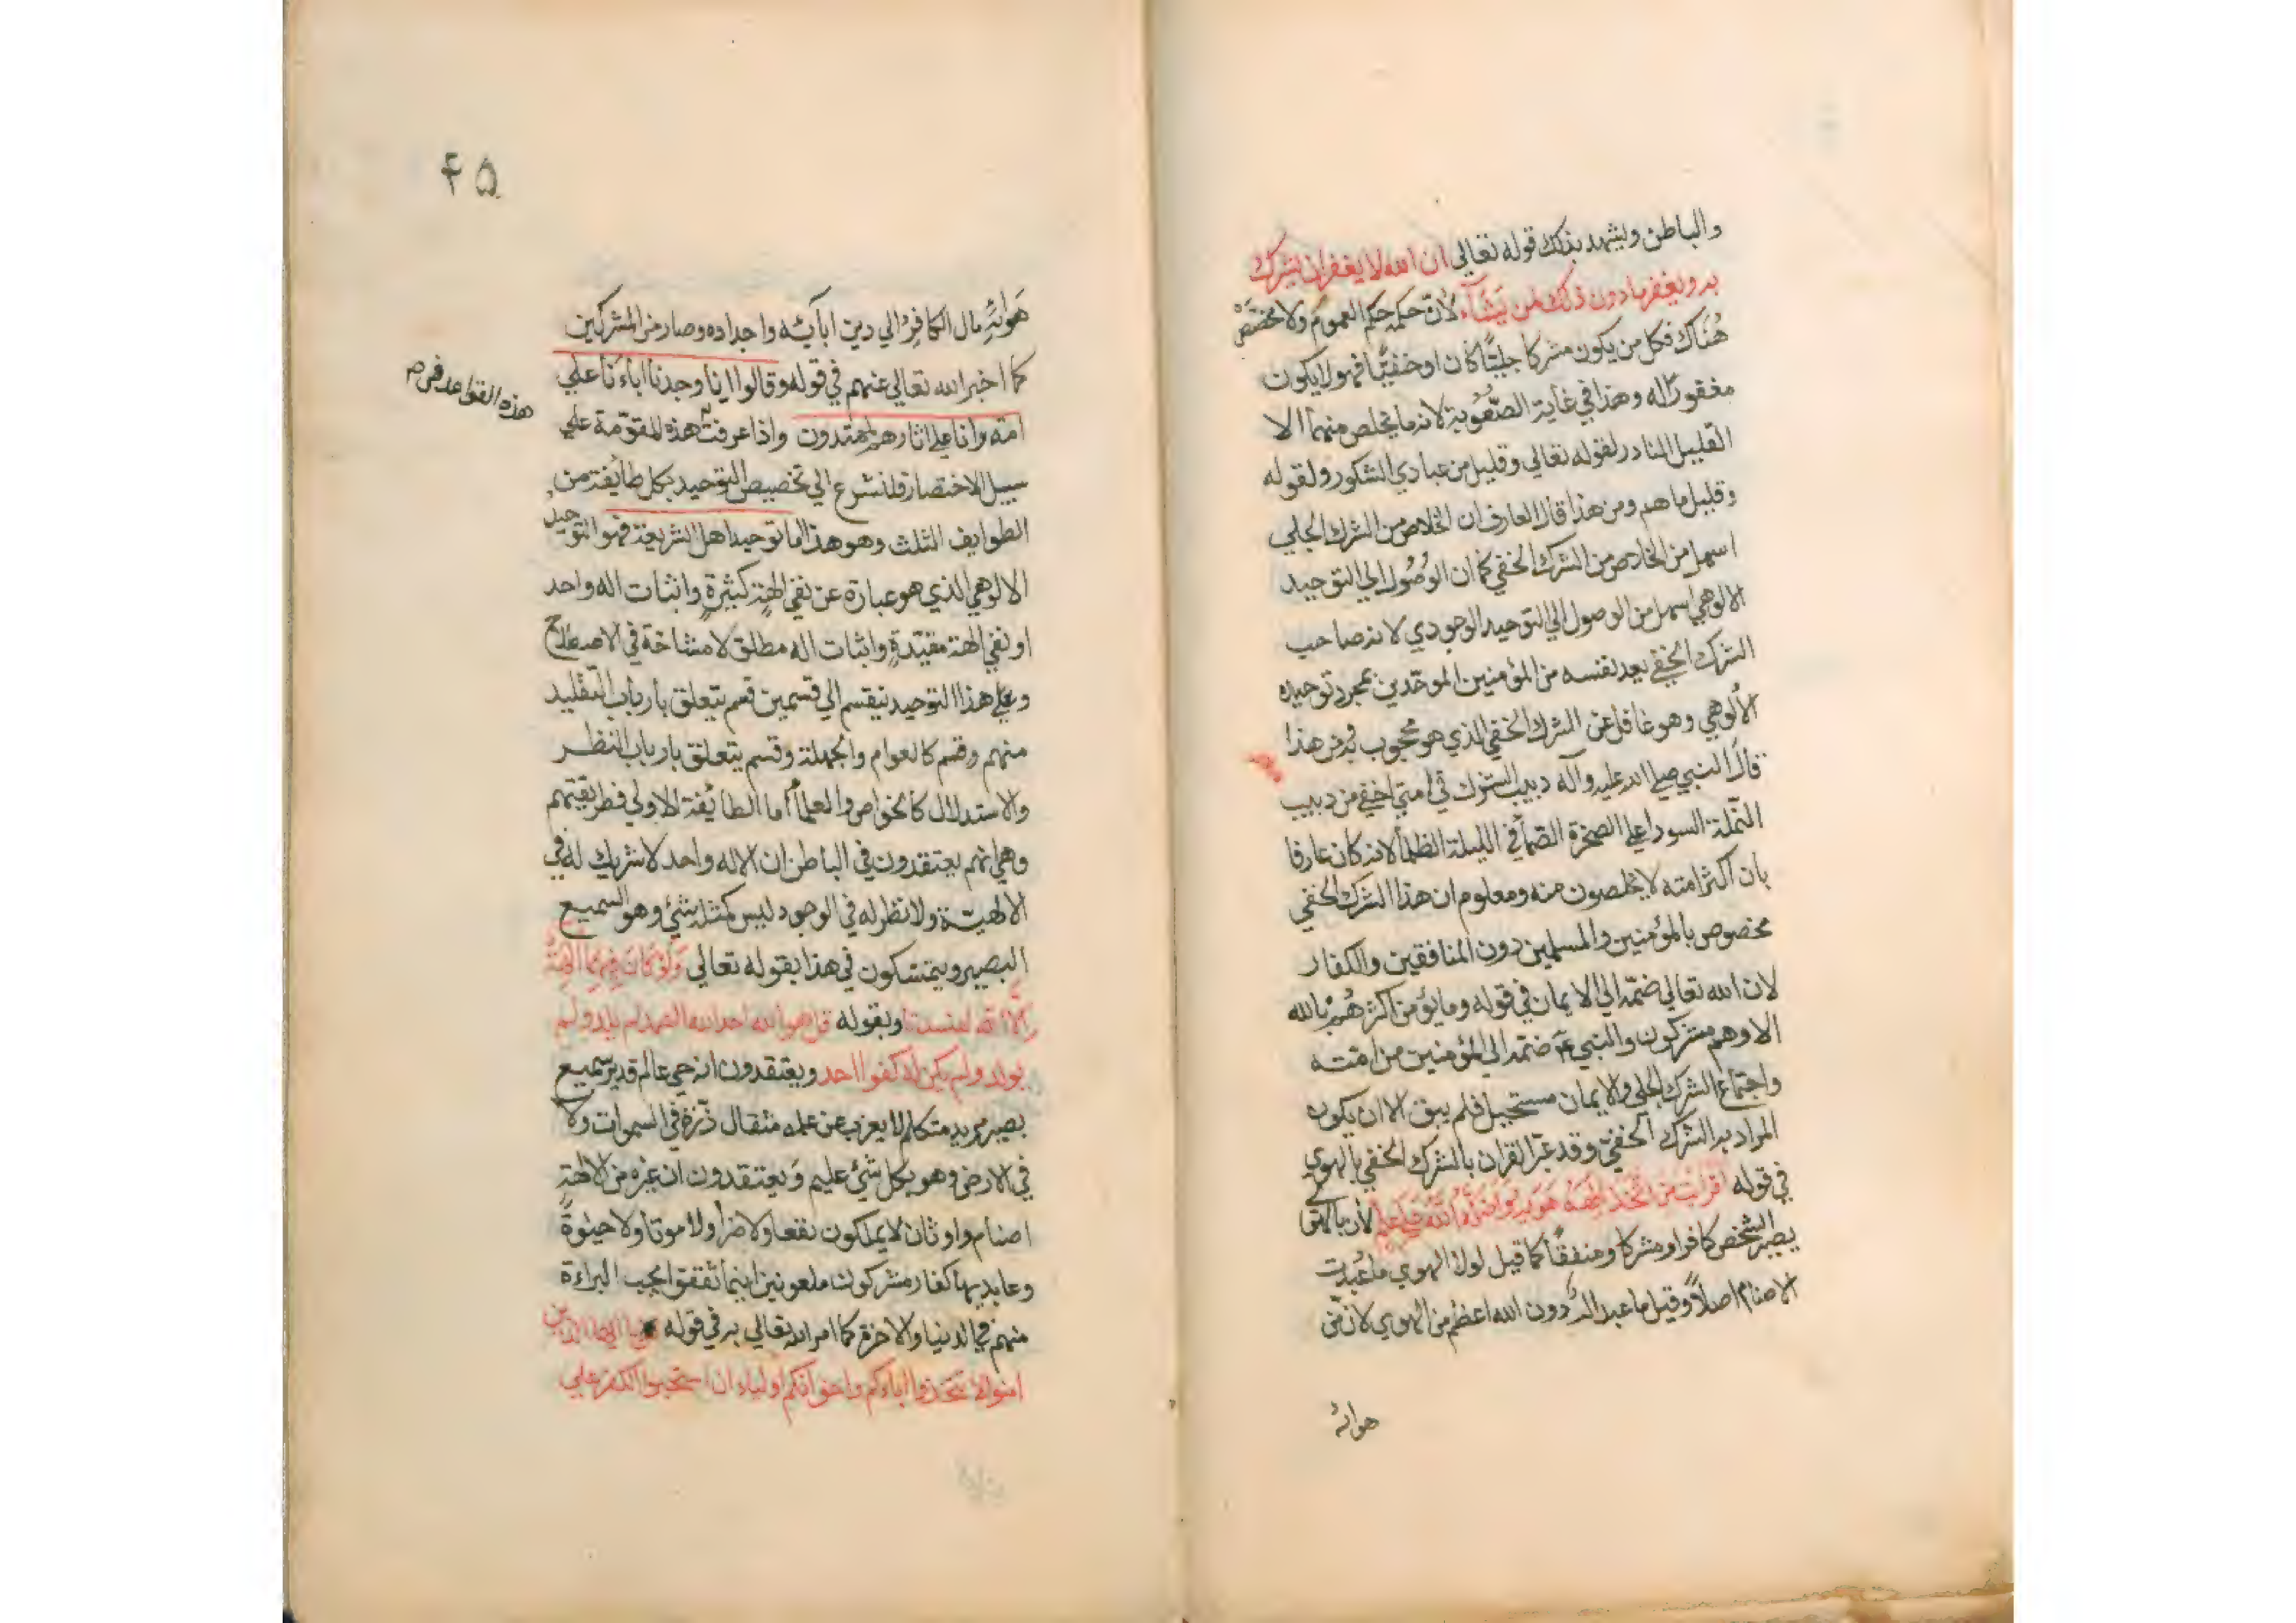 والباطن ويشهد بذلك قوله تعالي ان الله لا يغفر ان يشرك
به ويغفر ما دون ذلك لمن يشآء لأن حكمه حكم العموم ولا يختص
هُناك فكل من يكون مشركا جليّا كان او خفيّا فهو لا يكون
مغفورا له وهذا في غاية الصُّعُوبة لانه ما يخلص منهما الا
القليل النادر لقوله تعالي وقليل من عبادي الشكور ولقوله
وقليل ما هم ومن هذا قال العارف ان الخلاص من الشرك الجلي
اسهل من الخلاص من الشرك الخفي كما ان الوُصُول الي التوحيد
الالوهي اسهل من الوصول الي التوحيد الوجودي لانه صاحب
الشرك الخفي يعد نفسه من المؤمنين الموحّدين بمجرد توحيده
الألوهي وهو غافل عن الشرك الخفي الذي هو محجوب به من هذا
قال النبي صلي الله عليه وآله دبيب الشرك في امتي اخفي من دبيب
النّملة السودا علي الصخرة الصّمأ في الليلة الظلمأ لانه كان عارفا
بان اكثر امته لا يخلصون منه ومعلوم ان هذا الشرك الخفي
مخصوص بالمؤمنين والمسلمين دون المنافقين والكفار
لان الله تعالي ضمّه الي الايمان في قوله وما يؤمن اكثرهُم بالله
الا وهم مشركون والنبي ع ضمّه الي المؤمنين من امته
واجتماع الشرك الجلي والايمان مستحيل فلم يبق الا ان يكون
المراد به الشرك الخفيّ وقد عبّر القران بالشرك الخفي بالهوي
في قوله افرايت من اتّخذ الهه هويه واضله الله علي علم لأن بالهوي
يصير الشخص كافرا ومشركا ومنفقا كما قيل لولا الهوي ما عُبدت
الاصنام اصلاً وقيل ما عبد اله دون الله اعظم من الهوي لان من
هوائه
۴۵
هَوائِهِ مال الكافِرُ الي دين ابآئه واجداده وصار من المشركين
كما اخبر الله تعالي عنهم في قوله وقالوا انا وجدنا اباءنا علي
امة وانا علي اثارهم لمهتدون واذا عرفت هذه المقدّمة علي
هذه القواعد
سبيل الاختصار فلنشرع الي تخصيص التوحيد بكل طايفة من
الطوايف الثلث وهو هذا اما توحيد اهل الشريعة فهو التوحيد
الالوهي الذي هو عبارة عن نفي الهةٍ كثيرةٍ واثبات اله واحد
او نفي الهة مقيّدةٍ واثبات اله مطلق لا مشاحة في الاصطلاح
وعلي هذا التوحيد ينقسم الي قسمين قسم يتعلق بأرباب التّقليد
منهم وقسم كالعوام والجهلة وقسم يتعلق بارباب النظر
والاستدلال كالخواص والعلمأ أما الطائفة الاولي فطريقتهم
وهي انهم يعتقدون في الباطن ان الاله واحد لا شريك له في
الالهيّة ولا نظر له في الوجود ليس كمثله شئ وهو السميع
البصير ويتمسّكون في هذا بقوله تعالي وَلَوْ كانَ فيهِما الِهَةٌ
إلّا الله لفسدتا وبقوله قل هو الله احد الله الصّمد لم يلد ولم
يولد ولم يكن له كفوا احد ويعتقدون انه حي عالم قدير سميع
بصير مريد متكلم لا يعزب عن علمه مثقال ذّرةٍ في السموات ولا
في الارض وهو بكل شئ عليم وَيعتقدون ان غيره من الالهةِ
اصنام واوثان لا يملكون نفعا ولا ضراً ولا موتا ولا حيوةً
وعابديها كفار مشركون ملعونين اينما ثقفوا يجب البراءة
منهم في الدنيا والاخرة كما امر الله تعالي به في قوله يا ايها الذين
امنوا لا تتّخذوا اباءكم واخوانكم اولياء ان استحبوا الكفر علي